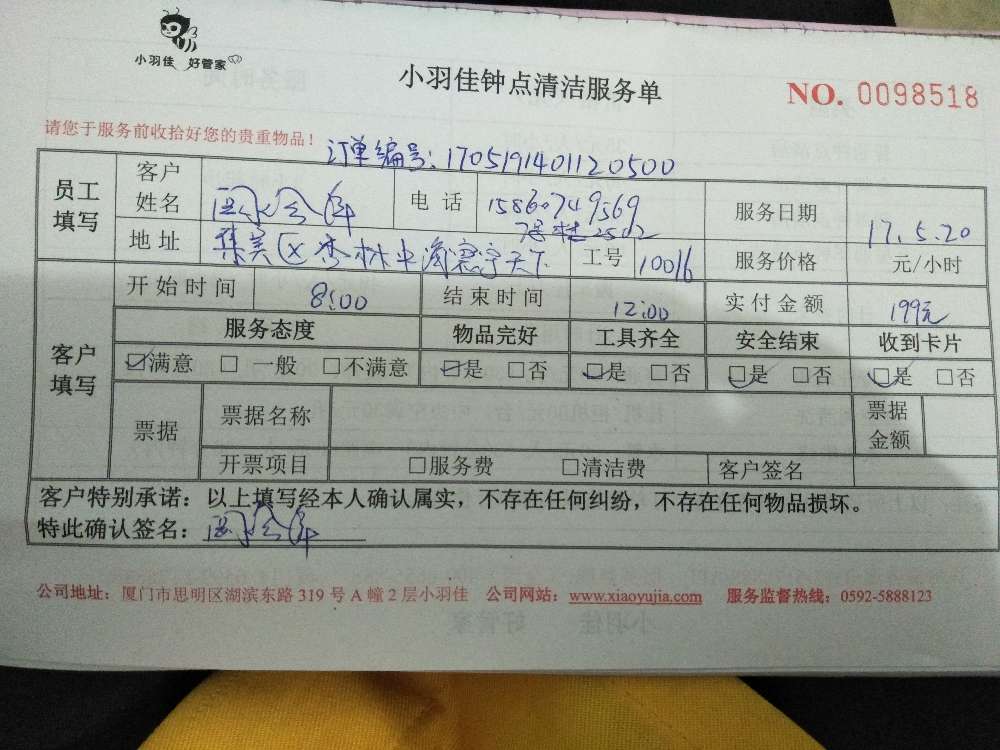 小羽佳 好管家
小羽佳钟点清洁服务单
NO. 0098518
请您于服务前收拾好您的贵重物品！
订单编号：1705191401120500
员工填写 客户姓名 电话 15860749569 服务日期 17.5.20
地址 集美区杏林中海寰宇天下 2502 工号 10016 服务价格 元/小时
客户填写 开始时间 8:00 结束时间 12:00 实付金额 199元
服务态度 物品完好 工具齐全 安全结束 收到卡片
☑满意 □一般 □不满意 ☑是 □否 ☑是 □否 ☑是 □否 ☑是 □否
票据 票据名称 票据金额
开票项目 □服务费 □清洁费 客户签名
客户特别承诺：以上填写经本人确认属实，不存在任何纠纷，不存在任何物品损坏。
特此确认签名：
公司地址：厦门市思明区湖滨东路 319 号 A 幢 2 层小羽佳 公司网站：www.xiaoyujia.com 服务监督热线：0592-5888123